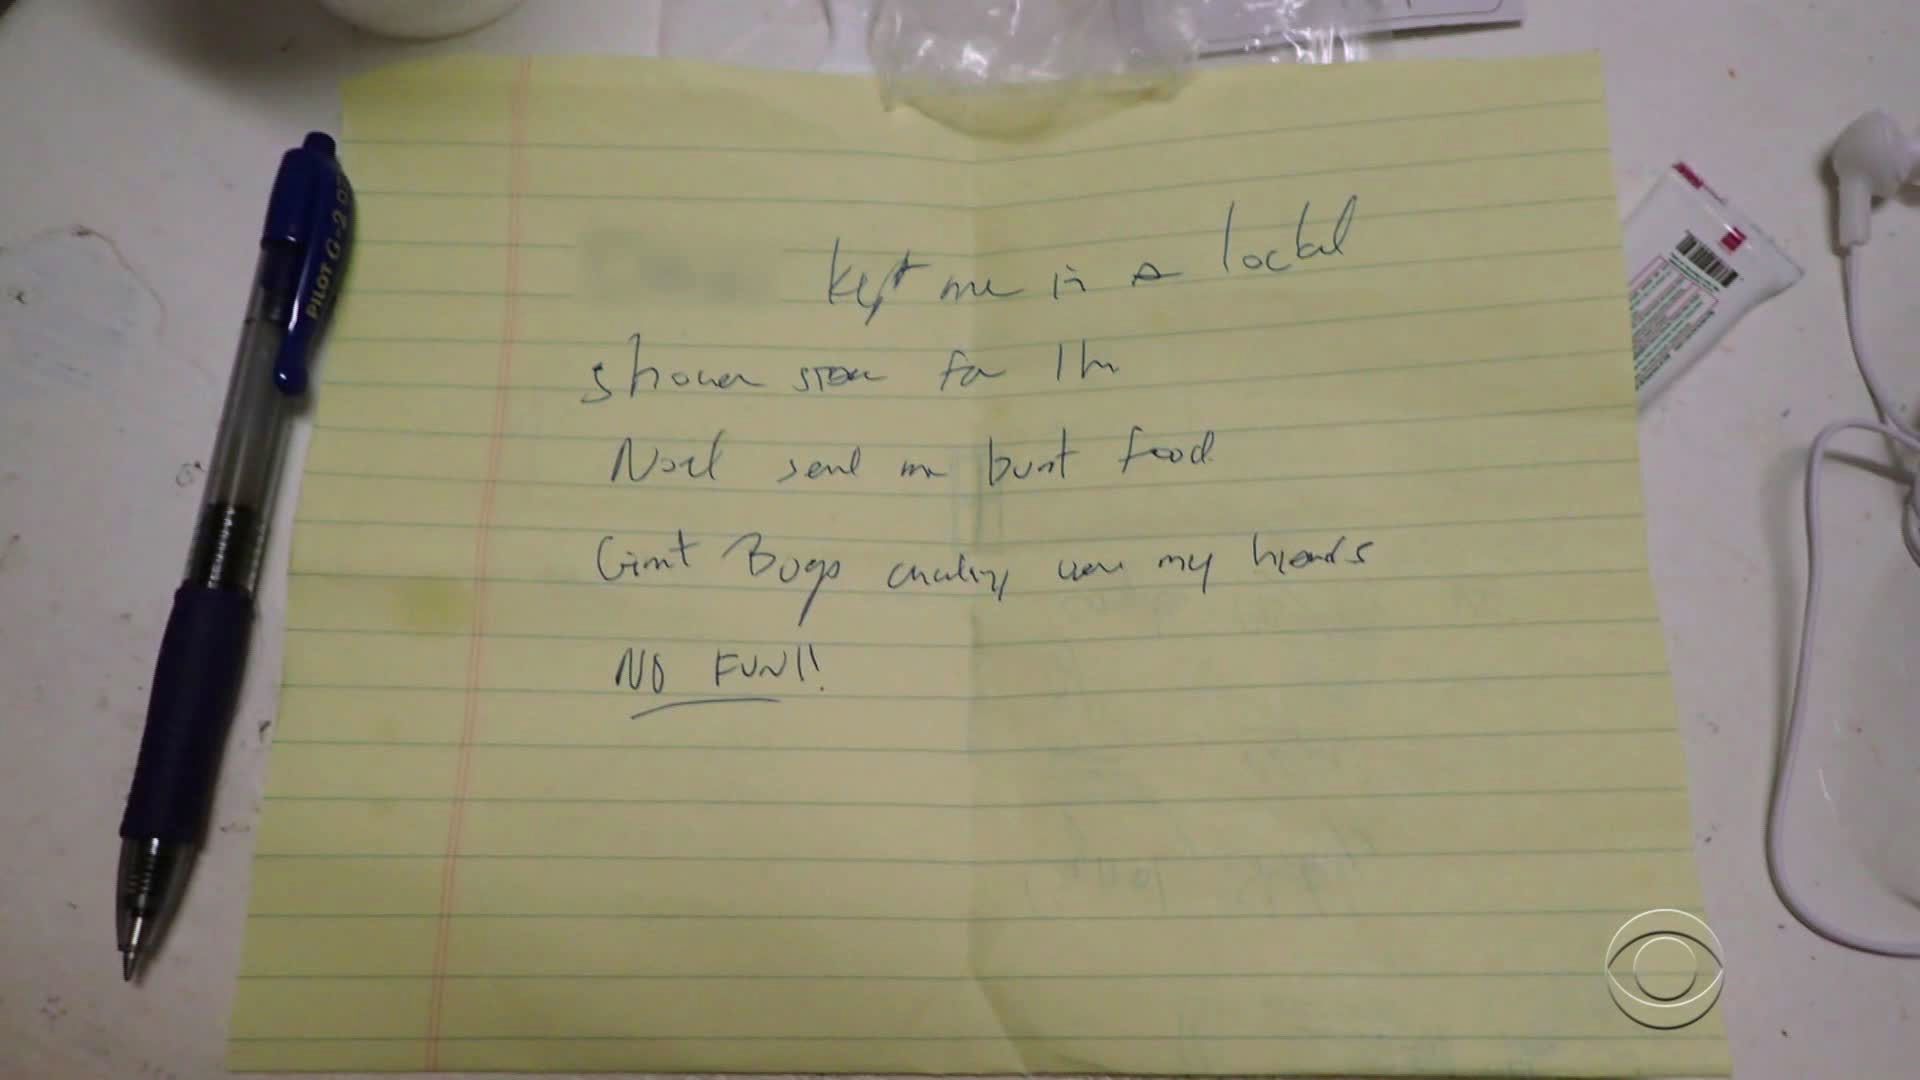 kept me in a locked
shower stall for 1 hr
sent me burnt food
Giant Bugs crawling over my hands
NO FUN!!
PILOT G-2 07